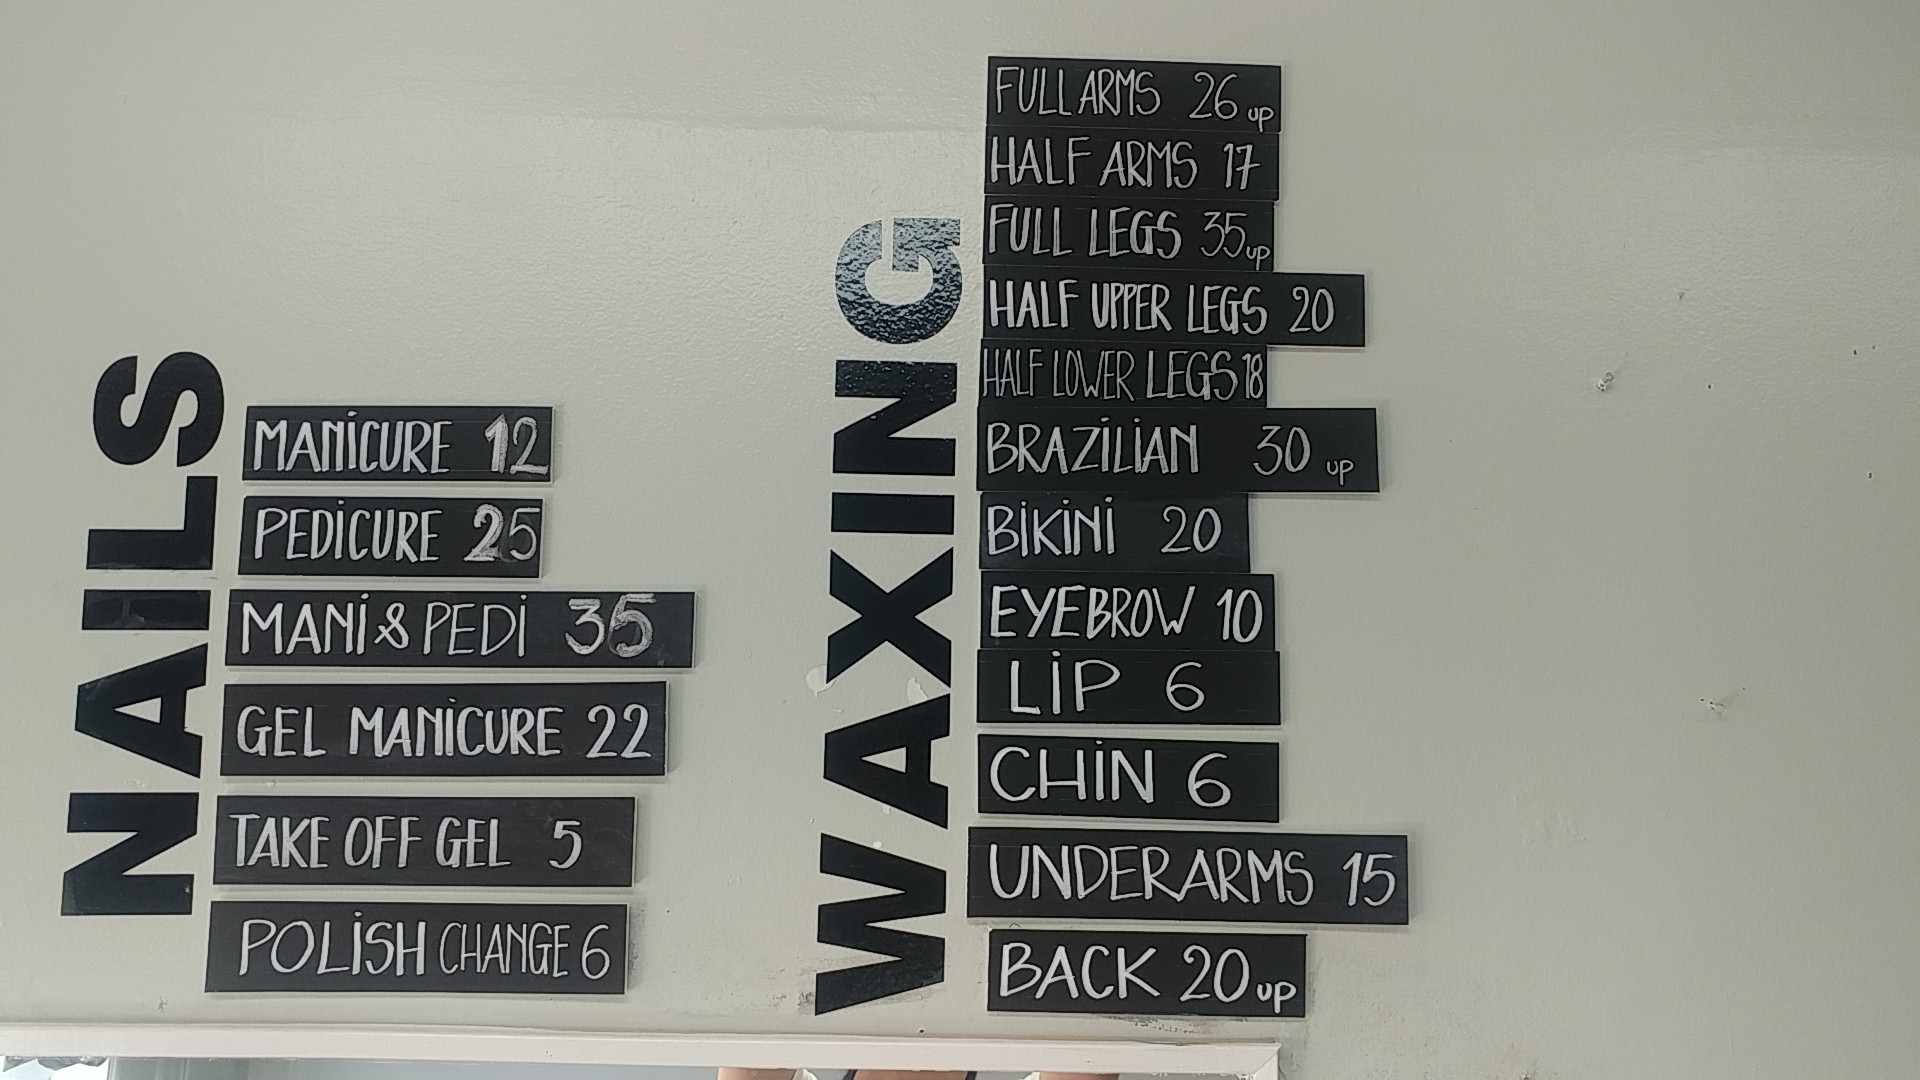 NAILS
MANiCURE 12
PEDiCURE 25
MANi & PEDi 35
GEL MANiCURE 22
TAKE OFF GEL 5
POLiSH CHANGE 6
WAXING
FULL ARMS 26 up
HALF ARMS 17
FULL LEGS 35 up
HALF UPPER LEGS 20
HALF LOWER LEGS 18
BRAZiLiAN 30 up
BiKiNi 20
EYEBROW 10
LiP 6
CHiN 6
UNDERARMS 15
BACK 20 up